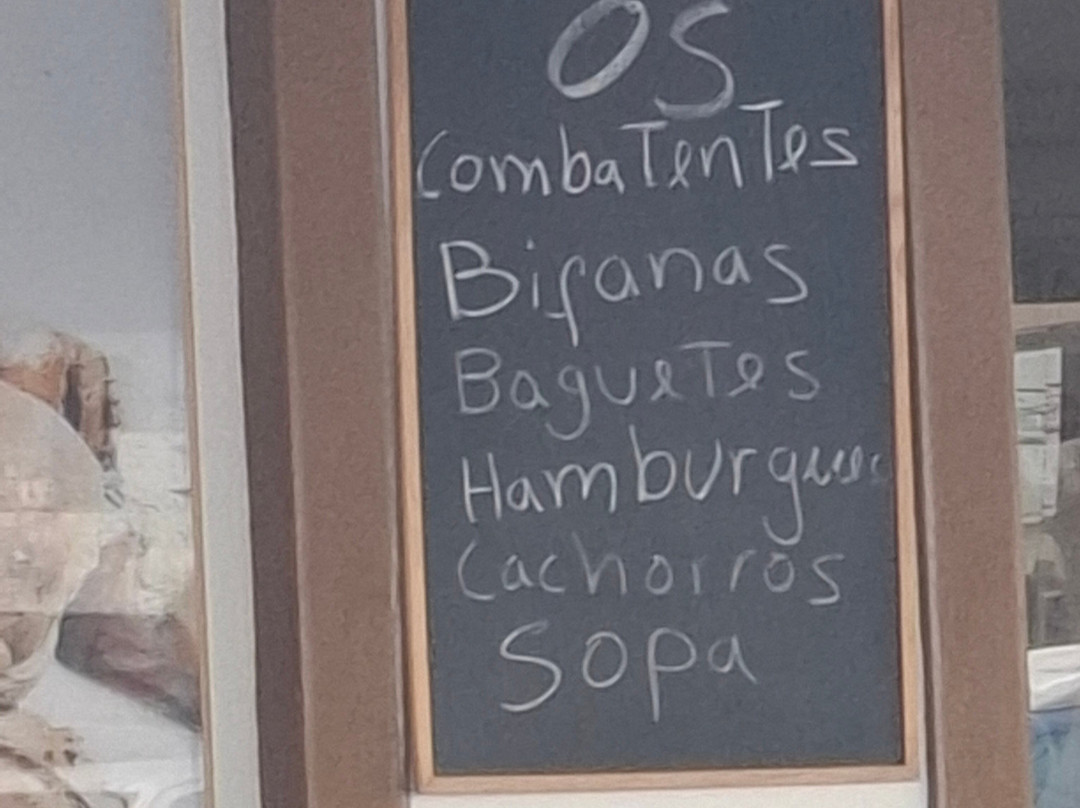 OS
CombaTenTes
Bifanas
BagueTes
Hamburgue
Cachorros
Sopa